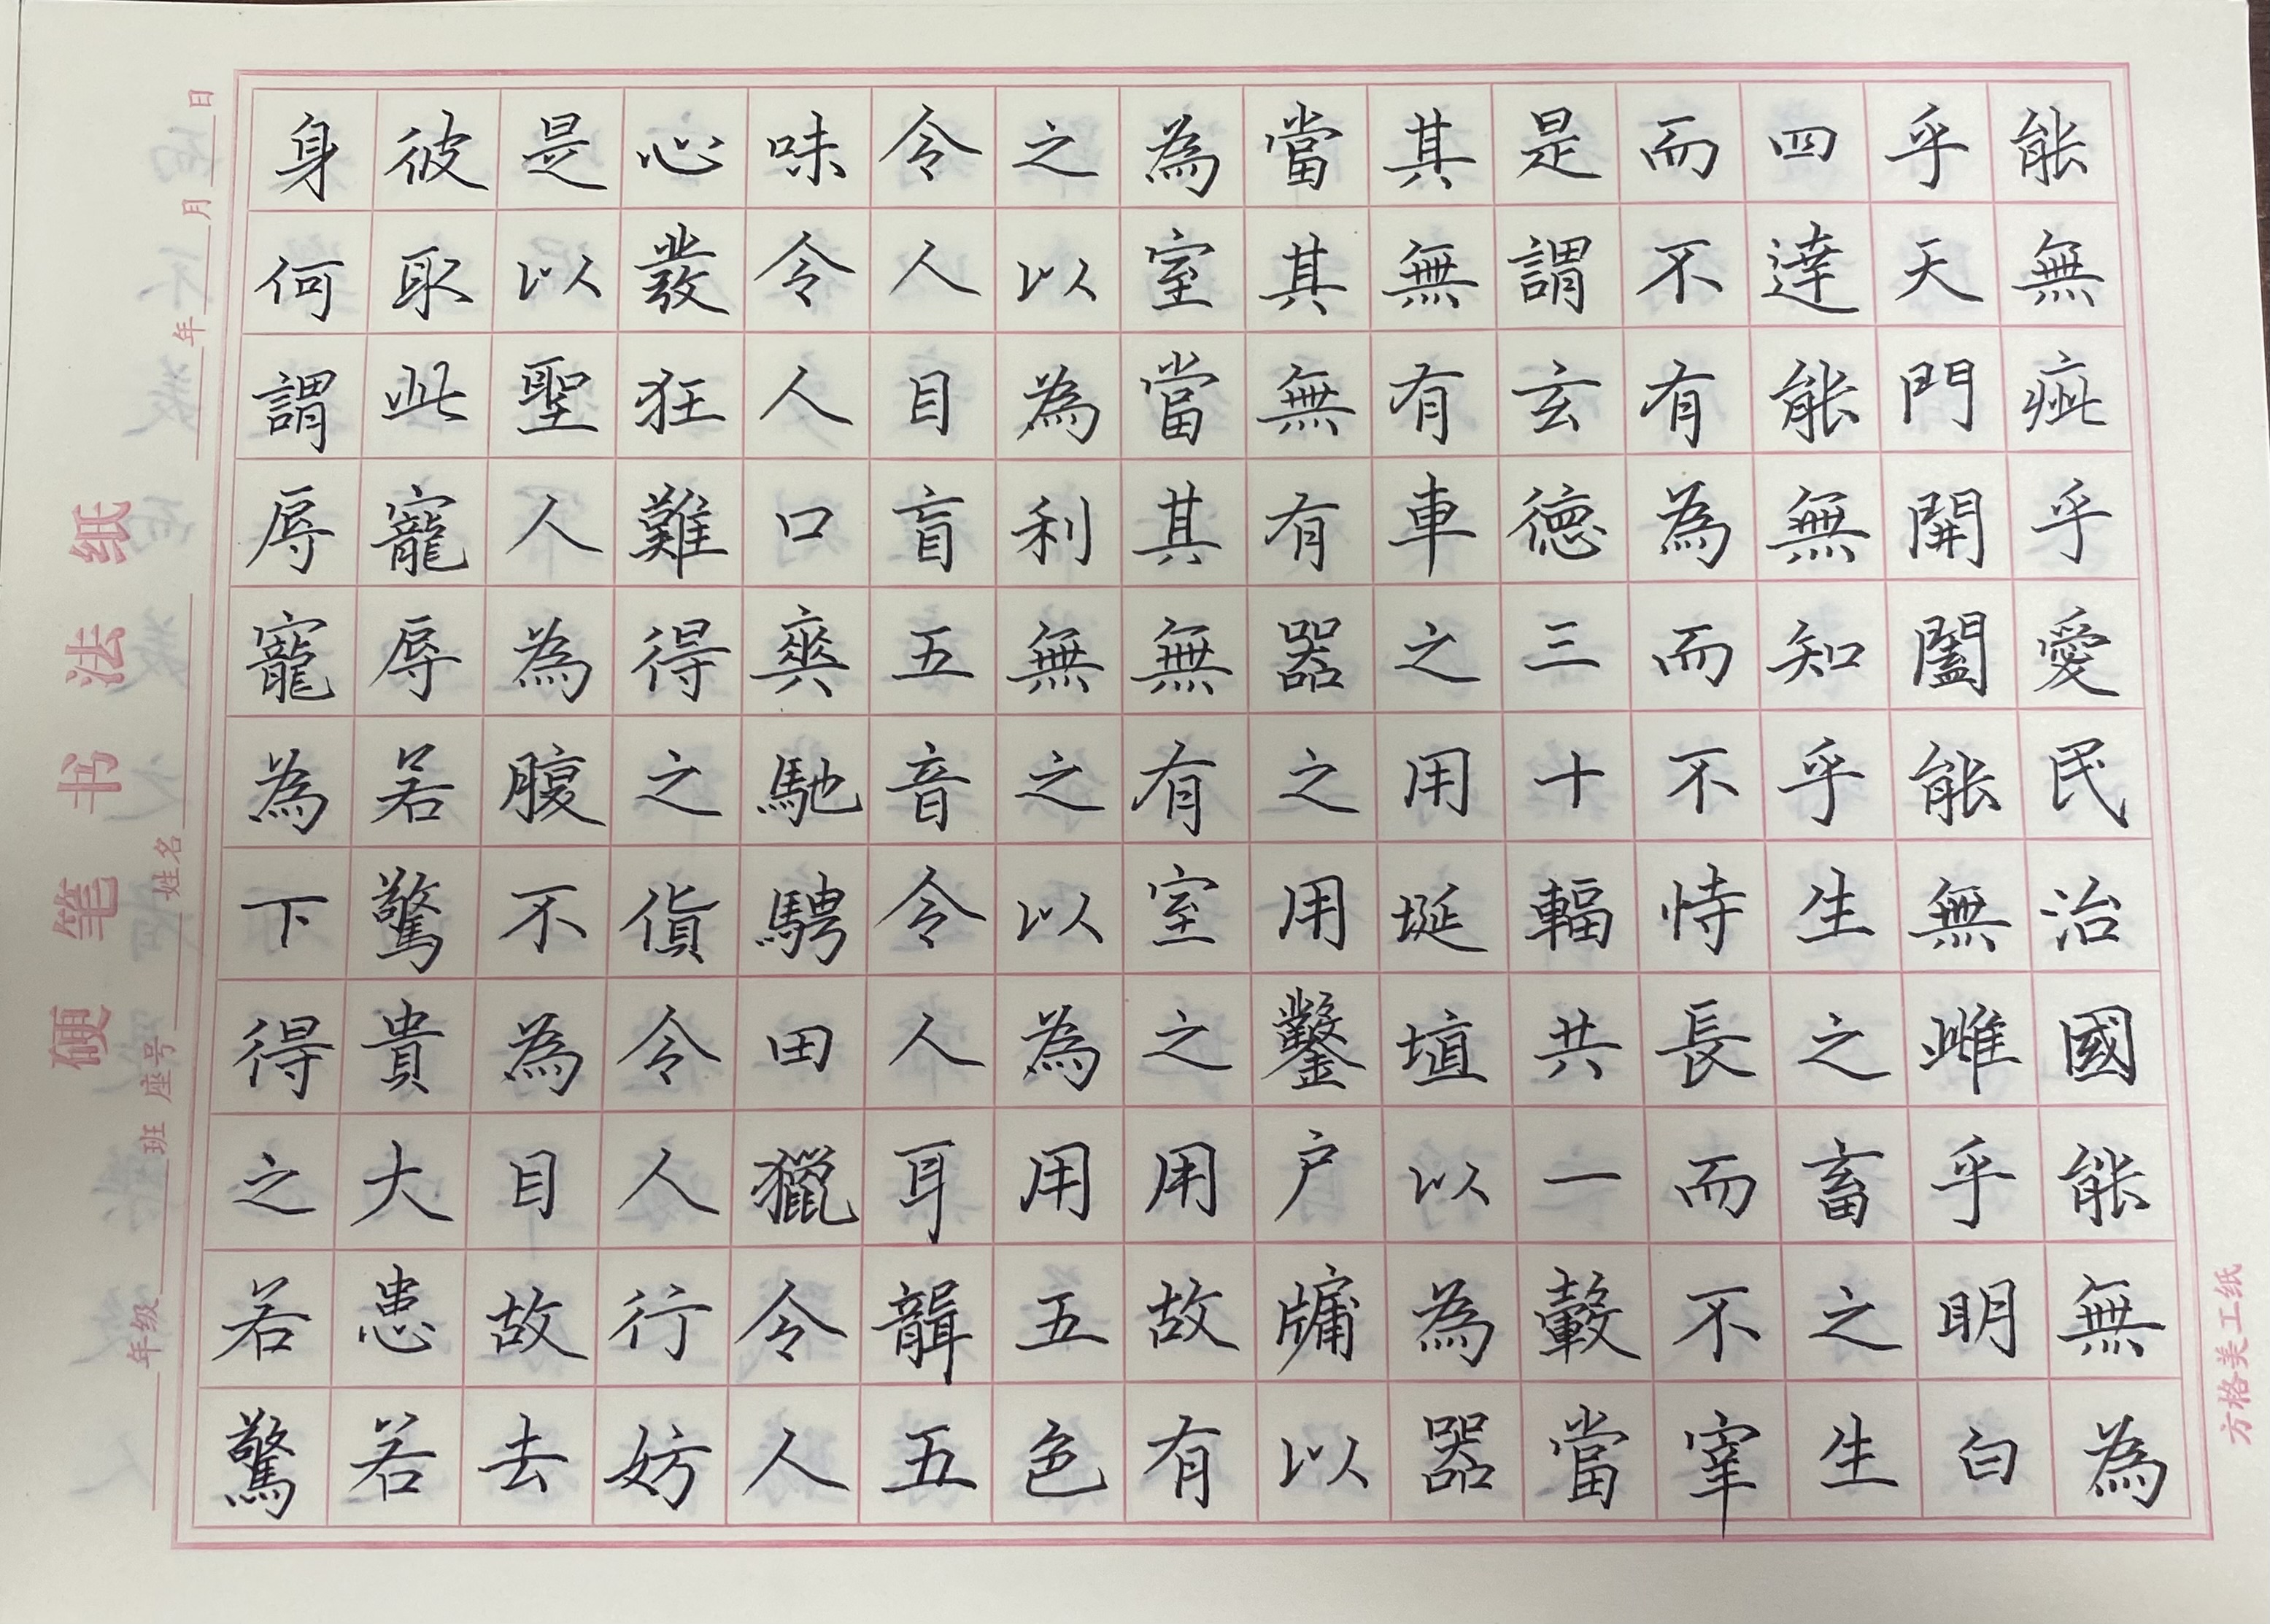 能無疵乎愛民治國能無為
乎天門開闔能無雌乎明白
四達能無知乎生之畜之生
而不有為而不恃長而不宰
是謂玄德三十輻共一轂當
其無有車之用埏埴以為器
當其無有器之用鑿户牖以
為室當其無有室之用故有
之以為利無之以為用五色
令人目盲五音令人耳聾五
味令人口爽馳騁田獵令人
心發狂難得之貨令人行妨
是以聖人為腹不為目故去
彼取此寵辱若驚貴大患若
身何謂辱寵為下得之若驚
硬笔书法纸
年级 班 座号 姓名 年 月 日
方格美工纸